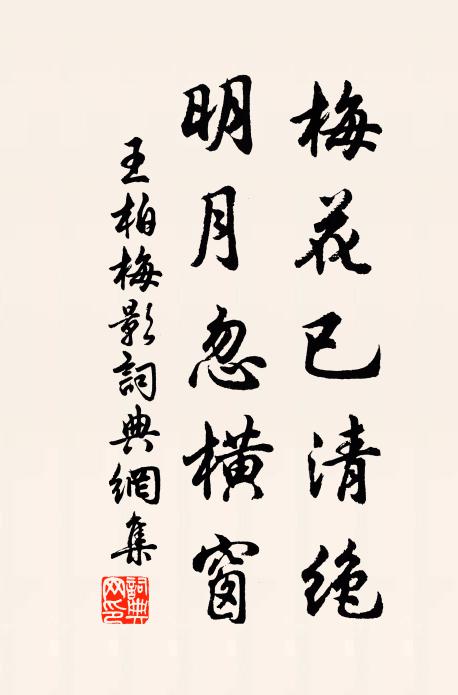 梅花已清绝
明月忽橫窗
王柏梅影詞典網集
詞典网印